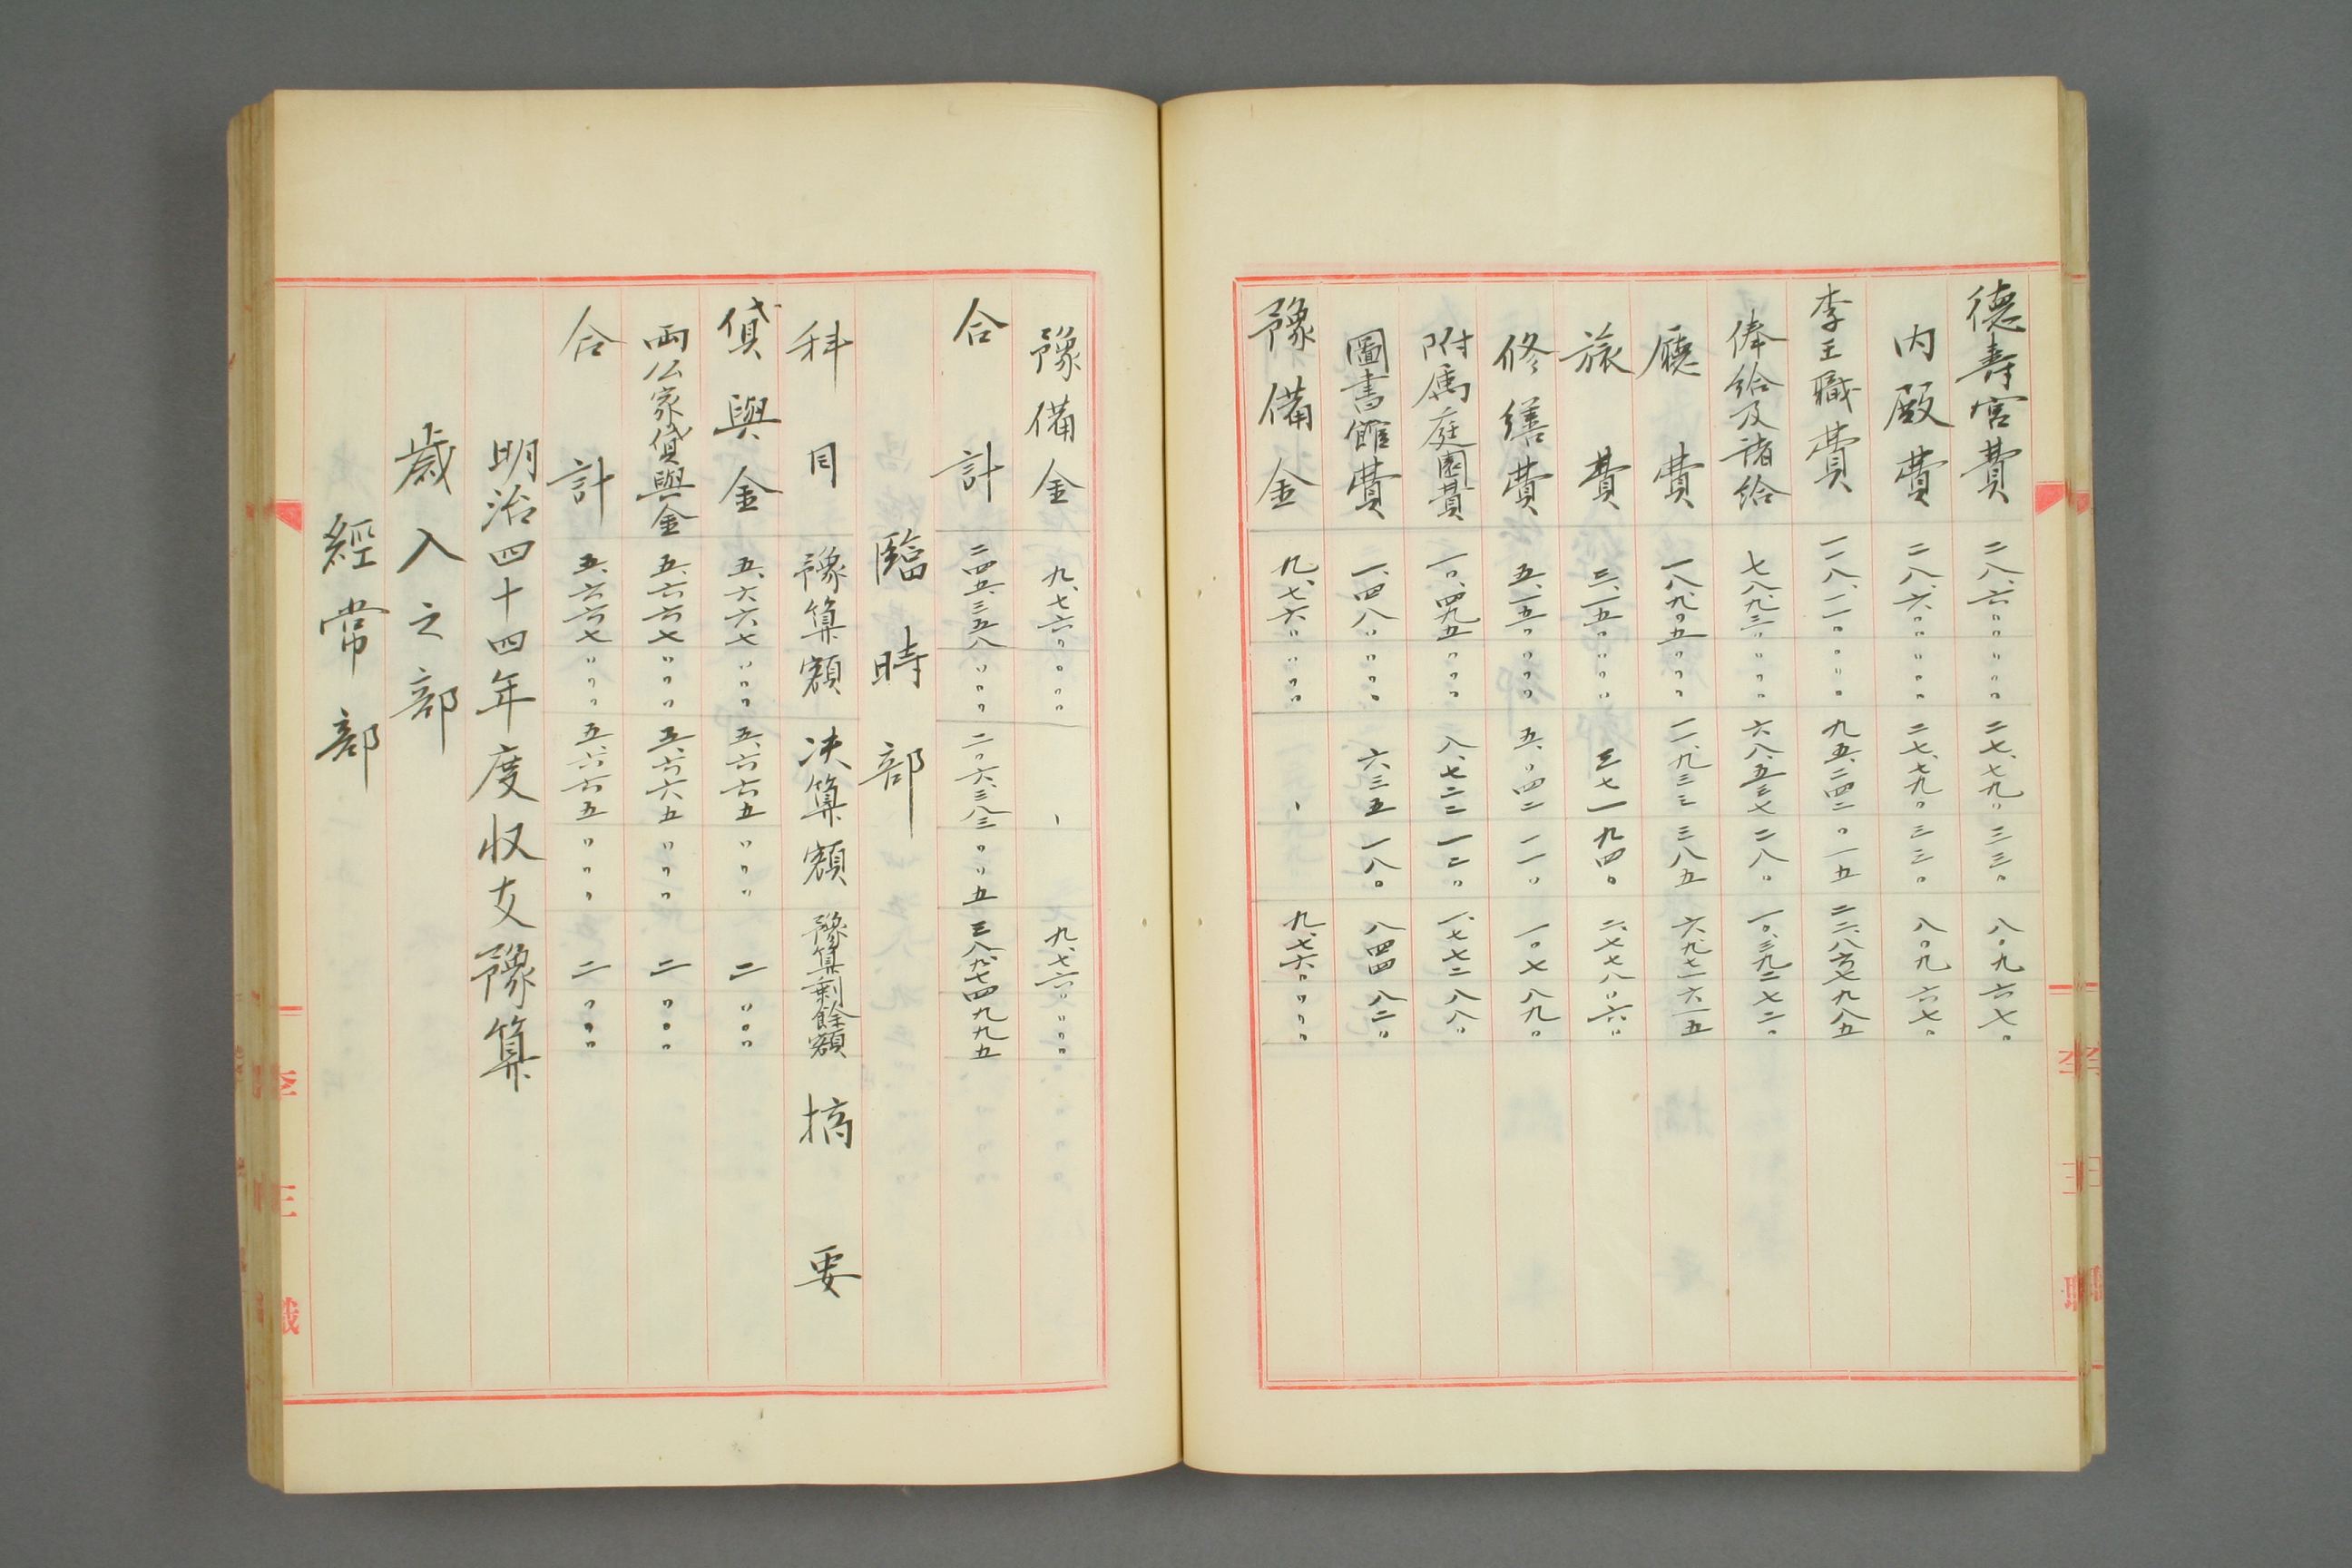 德壽宮費 二八、六〇〇〇〇〇 二七、七九〇三三〇 八〇九六七〇
内殿費 二八、六〇〇〇〇〇 二七、七九〇三三〇 八〇九六七〇
李王職費 一一八、一一〇〇〇〇 九五、二四二〇一五 二二、八六七九八五
俸給及諸給 七八、九三〇〇〇〇 六八、五三七二八〇 一〇、三九二七二〇
廳費 一八、九〇五〇〇〇 一一、九三三三八五 六、九七一六一五
旅費 三、一五〇〇〇〇 三七一九四〇 二、七七八〇六〇
修繕費 五、一五〇〇〇〇 五、〇四二一一〇 一〇七八九〇
附属庭園費 一〇、四九五〇〇〇 八、七二二一二〇 一、七七二八八〇
圖書館費 一、四八〇〇〇〇 六三五一八〇 八四四八二〇
豫備金 九、七六〇〇〇〇 、 九、七六〇〇〇〇
豫備金 九、七六〇〇〇〇 、 九、七六〇〇〇〇
合計 二四五、三五八〇〇〇 二〇六、三八三〇〇五 三八、九七四九九五
臨時部
科目 豫算額 决算額 豫算剩餘額 摘要
貸與金 五、六六七〇〇〇 五、六六五〇〇〇 二〇〇〇
両公家貸與金 五、六六七〇〇〇 五、六六五〇〇〇 二〇〇〇
合計 五、六六七〇〇〇 五、六六五〇〇〇 二〇〇〇
明治四十四年度収支豫算
歳入之部
經常部
李王職